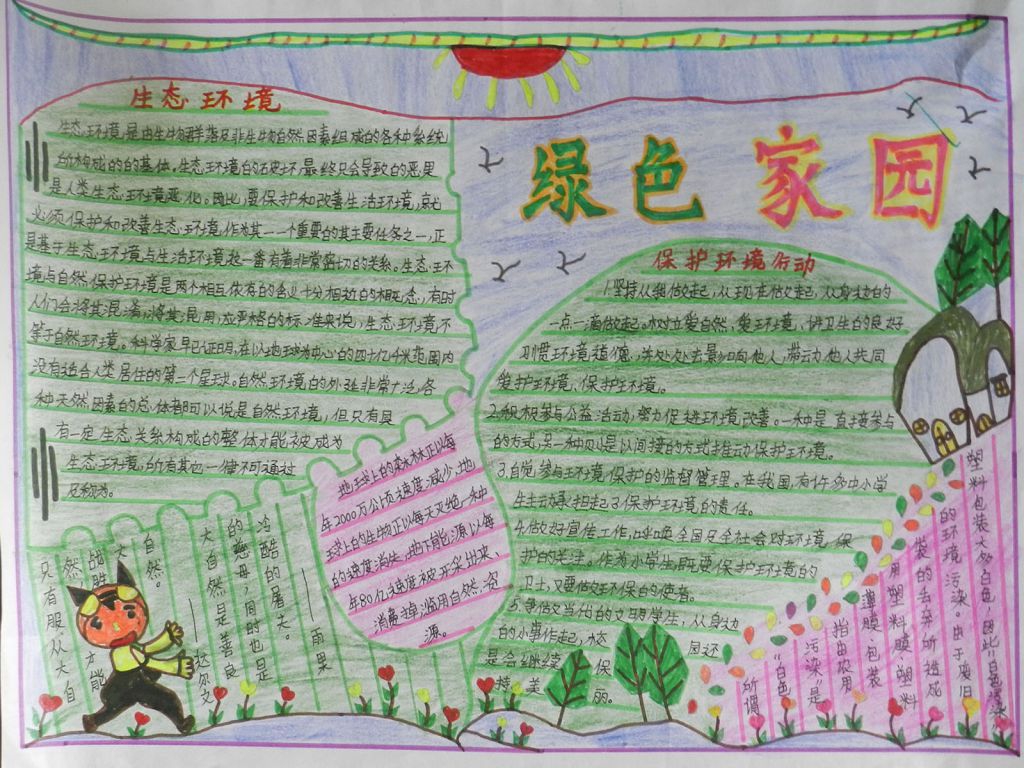 绿色家园
生态环境
生态环境,是由生物群落及非生物自然因素组成的各种系统
所构成的的基体。生态环境的破坏,最终只会导致的恶果
是人类生态环境恶化。因此,要保护和改善生活环境,就
必须保护和改善生态环境,作为其一一个重要的其主要任务之一,正
是基于生态环境与生活环境是一番有着非常密切的关系。生态环
境与自然保护环境是两个相互依存的含义十分相近的概念,有时
人们会将其混淆,将其混用,应严格的标准来说,生态环境不
等于自然环境。科学家早已证明,在以地球为中心的四十亿千米范围内
没有适合人类居住的第二个星球。自然环境的外延非常广泛,各
种天然因素的总体都可以说是自然环境,但只有具
有一定生态关系构成的整体才能被成为
生态环境,所有其他一律不可通过
及称为。
冷酷的暑天。
——雨果
大自然是善良
的慈母,同时也是
自然。
——达尔文
只有服从大自
然
战胜
才能
地球上的森林正以每
年2000万公顷速度减少,地
球上的生物正以每天灭绝一种
的速度消失,地下能源以每
年80亿速度被开采出来、
消毒掉,滥用自然,资
源。
保护环境行动
1.坚持从我做起,从现在做起,从身边的
一点一滴做起。树立爱自然,爱环境,讲卫生的良好
习惯环境道德,并处处去影响他人,带动他人共同
爱护环境,保护环境。
2.积极参与公益活动,努力促进环境改善。一种是直接参与
的方式,另一种则是以间接的方式推动保护环境。
3.自觉参与环境保护的监督管理。在我国,有许多中小学
生主动承担起了保护环境的责任。
4.做好宣传工作,呼唤全国及全社会对环境保
护的关注。作为小学生,既要保护环境的
卫士,又要做好环保的使者。
5.争做文当代的文明学生,从身边
的小事作起,
是会继续保
持美丽。
所谓
"白色
污染"是
指由农用
薄膜包装
用塑料膜、塑料
装的丢弃所造成
的环境污染。由于废旧
塑料包装大多白色,因此"白色